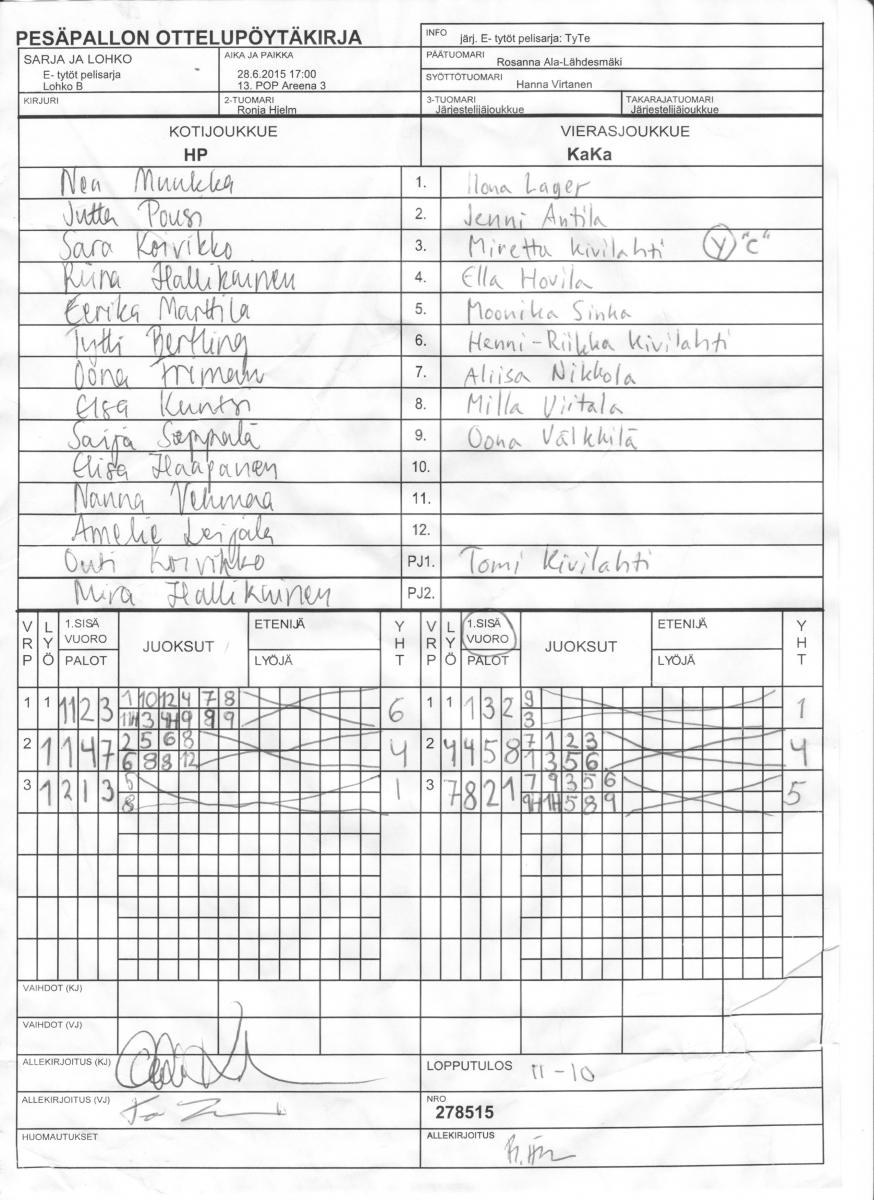 PESÄPALLON OTTELUPÖYTÄKIRJA
INFO järj. E- tytöt pelisarja: TyTe
SARJA JA LOHKO
E- tytöt pelisarja
Lohko B
AIKA JA PAIKKA
28.6.2015 17:00
13. POP Areena 3
PÄÄTUOMARI
Rosanna Ala-Lähdesmäki
SYÖTTÖTUOMARI
Hanna Virtanen
KIRJURI
2-TUOMARI
Ronja Hielm
3-TUOMARI
Järjestelijäjoukkue
TAKARAJATUOMARI
Järjestelijäjoukkue
KOTIJOUKKUE VIERASJOUKKUE
HP KaKa
Nea Muukka 1. Ilona Lager
Jutta Pousi 2. Jenni Antila
Sara Koivikko 3. Miretta Kivilahti Y "C"
Riina Hallikainen 4. Ella Hovila
Eerika Marttila 5. Moonika Sinka
Tytti Bertling 6. Henni-Riikka Kivilahti
Oona 7. Aliisa Nikkola
Elsa Kuntsi 8. Milla Viitala
Saija Seppälä 9. Oona Välkkilä
Elisa Haapanen 10.
Nanna Vehmaa 11.
Amelie Leijala 12.
Outi Koivikko PJ1. Tomi Kivilahti
Mira Hallikainen PJ2.
VRP LYÖ 1.SISÄ VUORO PALOT JUOKSUT ETENIJÄ LYÖJÄ YHT VRP LYÖ 1.SISÄ VUORO PALOT JUOKSUT ETENIJÄ LYÖJÄ YHT
1 1 11 2 3 1 10 12 4 7 8 6 1 1 1 3 2 9 1
3 9 8 9 3
2 1 1 4 7 2 5 6 8 4 2 4 4 5 8 7 1 2 3 4
6 8 8 12 1 3 5 6
3 1 2 1 3 5 1 3 7 8 2 1 7 9 3 5 6 5
8 5 8 9
VAIHDOT (KJ)
VAIHDOT (VJ)
ALLEKIRJOITUS (KJ)
LOPPUTULOS 11-10
ALLEKIRJOITUS (VJ)
NRO
278515
HUOMAUTUKSET
ALLEKIRJOITUS